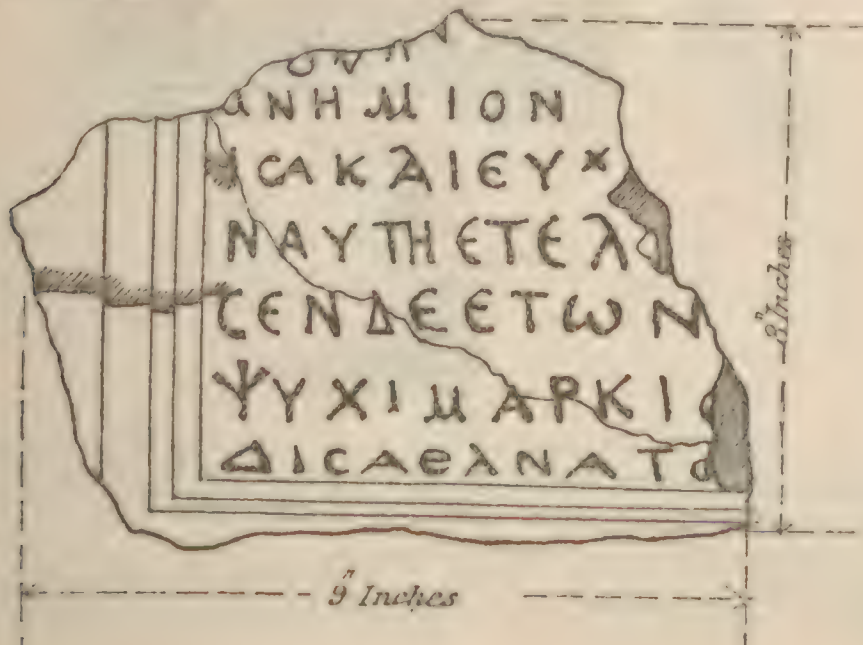 ΑΝΗΜΙΟΝ
ΙϹΑΚΑΙΕΥΧ
ΝΑΥΤΗΕΤΕΛ
ϹΕΝΔΕΕΤΩΝ
ΨΥΧΙΜΑΡΚΙ
ΔΙϹΑΘΑΝΑΤΟ
8" Inches
9" Inches